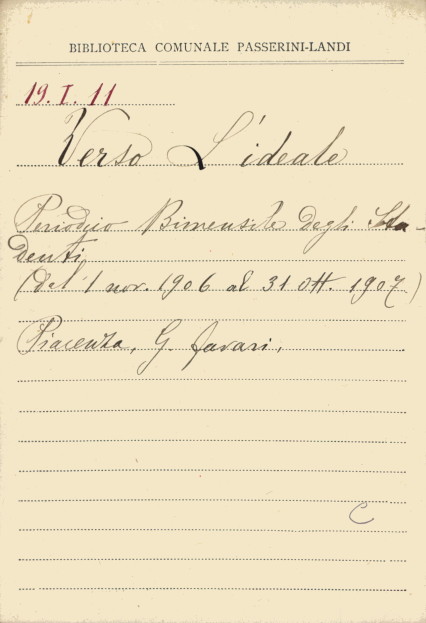 BIBLIOTECA COMUNALE PASSERINI-LANDI
19. I. 11
Verso L'ideale
Periodico Bimensile degli Stu-
denti
(dal 1 nov. 1906 al 31 ott. 1907)
Piacenza, G. Favari,
C